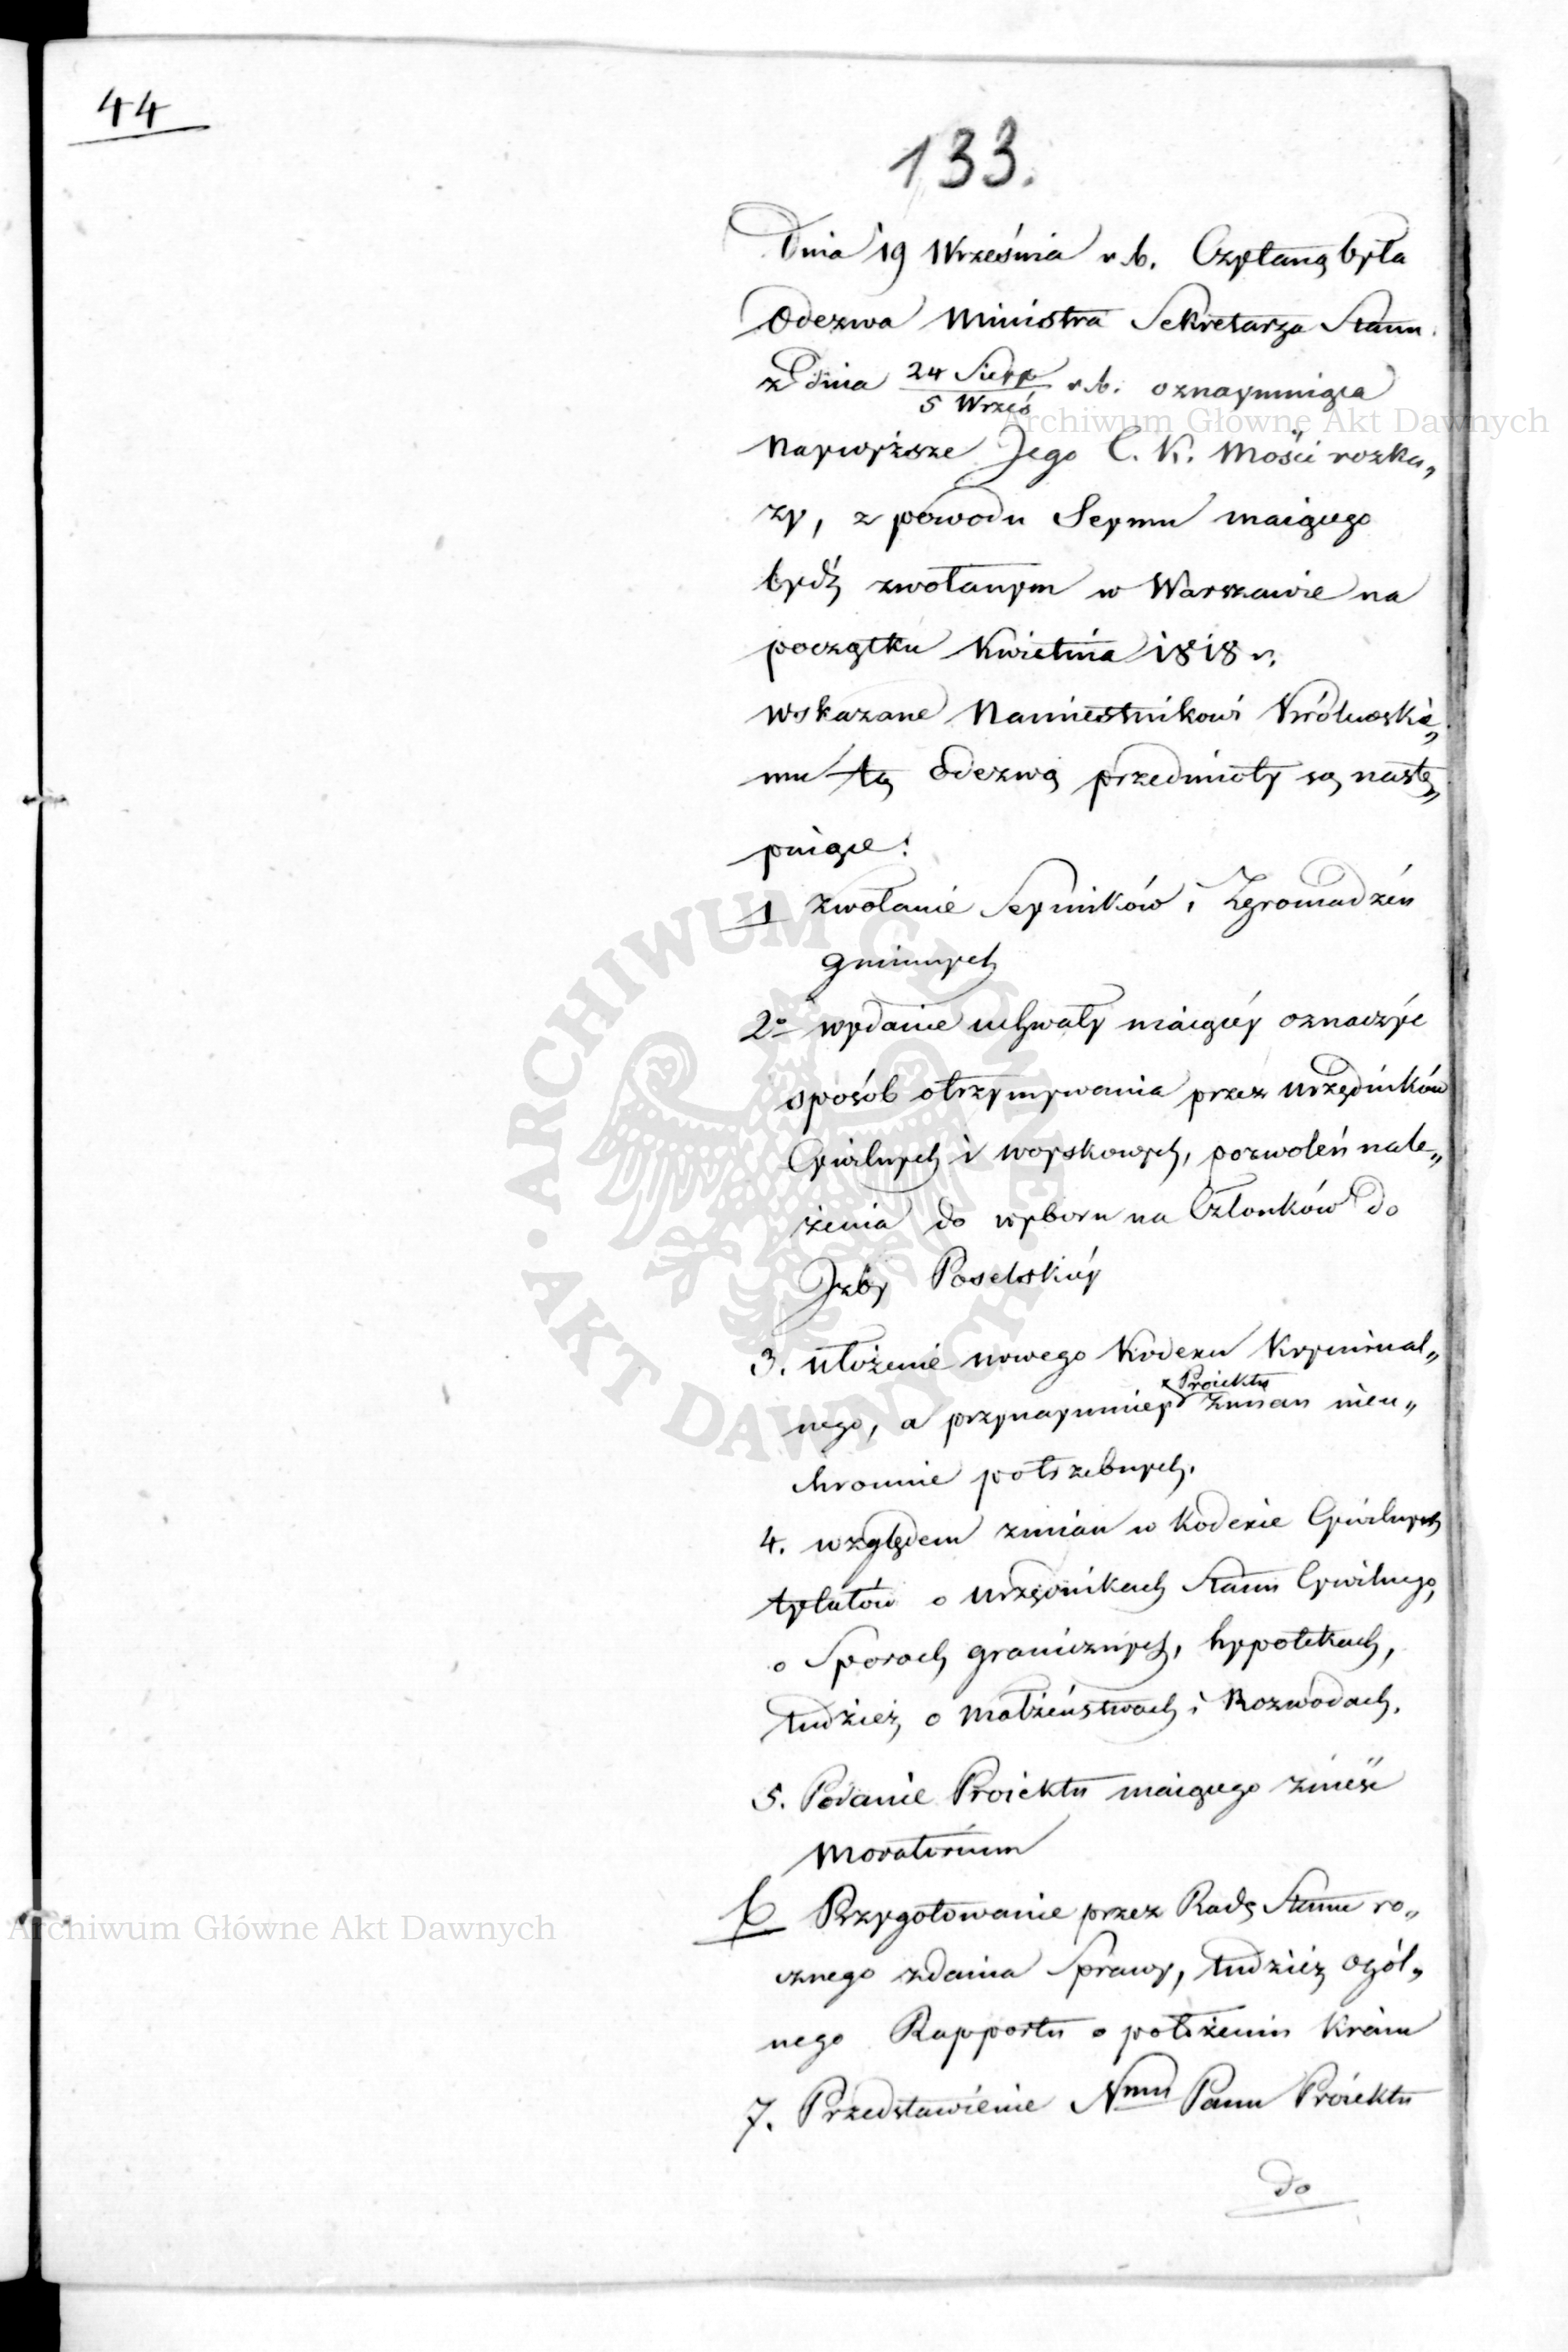 44
133.
Dnia 19 Września r. b. Czytaną była
Odezwa Ministra Sekretarza Stanu
z dnia 24 Sierp / 5 Wrześ r. b. oznaymuiąca
Naywyższe Jego C. K. Mości rozka„
zy, z powodu Seymu maiącego
bydź zwołanym w Warszawie na
początku Kwietnia 1818 r.
Wskazane Namiestnikowi Królewskie„
mu tą Odezwą przedmioty są nastę„
puiące:
1 Zwołanie Seymików i Zgromadzeń
gminnych
2o wydanie uchwały maiącéy oznaczyć
sposób otrzymywania przez urzędników
Cywilnych i woyskowych, pozwoleń nale„
żenia do wyboru na Członków do
Jzby Poselskiéy
3. ułożenie nowego Kodexu Kryminal„
Proiektu
nego, a przynaymniey zmian nieu„
chronnie potrzebnych.
4. względem zmian w Kodexie Cywilnych
tytułów o urzędnikach Stanu Cywilnego,
o Sporach granicznych, hypotekach,
tudzież o Małżeństwach i Rozwodach.
5. Podanie Proiektu maiącego znieść
Moratorium
6 Przygotowanie przez Radę Stanu ro„
cznego zdania Sprawy, tudzież ogól„
nego Rapportu o położeniu Kraiu
7. Przedstawienie Nmu Panu Proiektu
do
Archiwum Główne Akt Dawnych
ARCHIWUM GŁÓWNE AKT DAWNYCH
Archiwum Główne Akt Dawnych